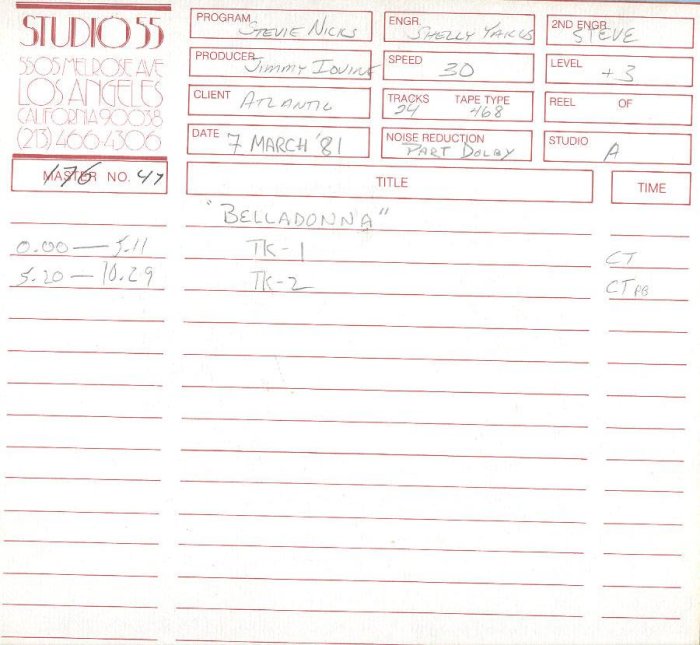 STUDIO 55
5505 MELROSE AVE
LOS ANGELES
CALIFORNIA 90038
(213) 466-4306
PROGRAM STEVIE NICKS
ENGR. SHELLY YAKUS
2ND ENGR. STEVE
PRODUCER Jimmy Iovine
SPEED 30
LEVEL +3
CLIENT ATLANTIC
TRACKS 24 TAPE TYPE 468
REEL OF
DATE 7 MARCH '81
NOISE REDUCTION PART DOLBY
STUDIO A
MASTER NO. 47
176
TITLE
TIME
"BELLADONNA"
0.00 — 5.11 TK-1 CT
5.20 — 10.29 TK-2 CT PB